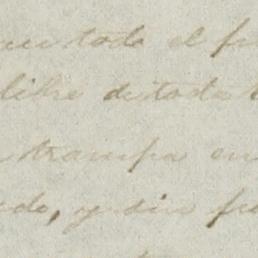 toda el fu
libre de toda
trampa en
do, y sin fu